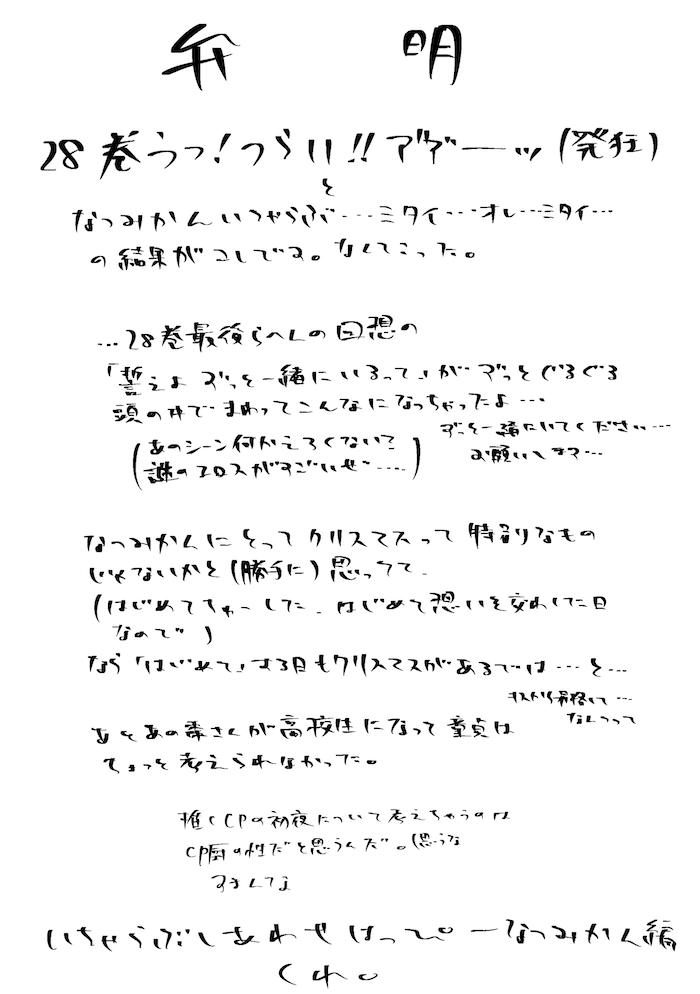 弁 明
28巻うっ!つらい!!アアーーッ(発狂)
と
なつみかんいちゃらぶ…ミタイ…オレ…ミタイ…
の結果がコレです。なんてこった。
…28巻最後らへんの回想の
「誓えよ ずっと一緒にいるって」がずっとぐるぐる
頭の中でまわってこんなになっちゃったよ…
ずっと一緒にいてください…
お願いします…
(あのシーン何かえろくない?
謎のエロスがすごいぜ……)
なつみかんにとってクリスマスって特別なもの
じゃないかと(勝手に)思ってて、
(はじめてちゅーした、はじめて想いを交わした日
なので)
なら「はじめて」する日もクリスマスがあるでは…と…
なんつって
あとあの棗さんが高校生になって童貞は
ちょっと考えられなかった。
推しCPの初夜について考えちゃうのは
CP厨の性だと思うんだ。(思うな
すまんな
いちゃらぶしあわせはっぴーなつみかん編
くれ。